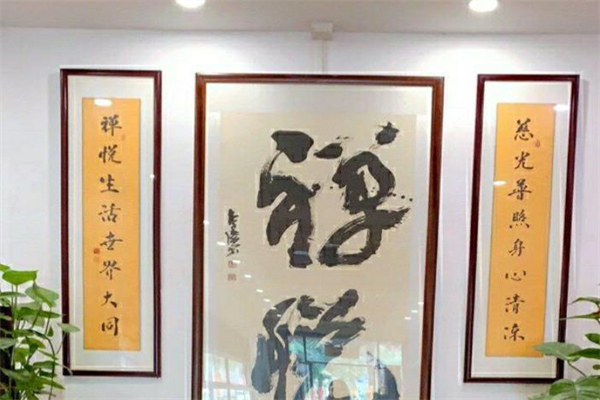 慈光普照身心清凉
禅悦
禪悦生活世界大同